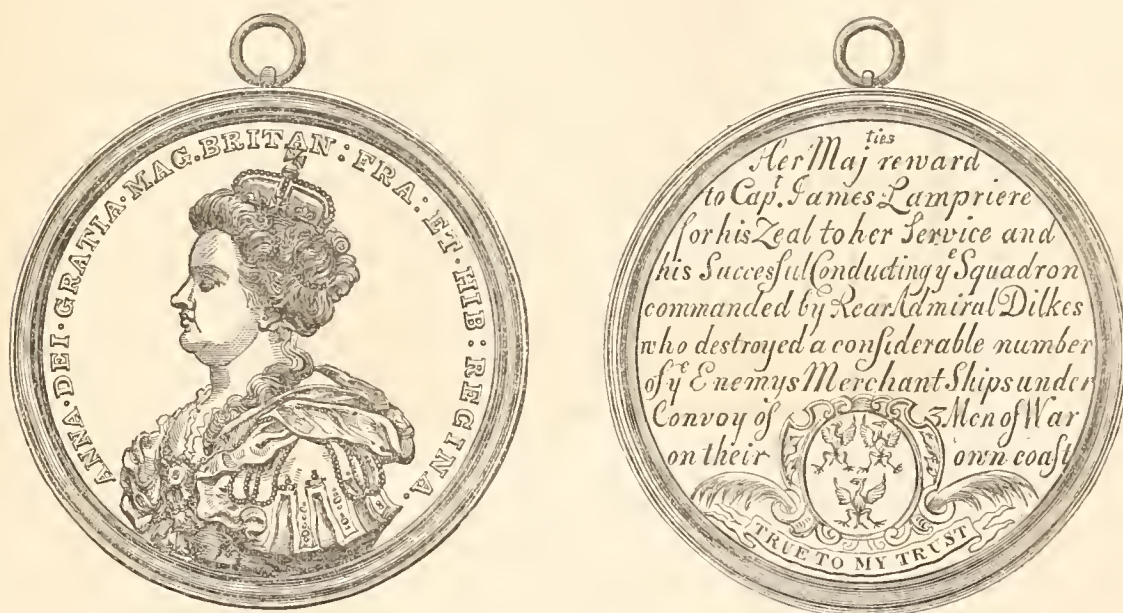 ANNA·DEI·GRATIA·MAG·BRITAN:FRA:ET·HIB:REGINA·
Her Maj^ties reward
to Cap^t. James Lampriere
for his Zeal to her Service and
his Succesful Conducting y^e Squadron
commanded by Rear Admiral Dilkes
who destroyed a conſiderable number
of y^e Enemys Merchant Ships under
Convoy of 3 Men of War
on their own coaſt
TRUE TO MY TRUST